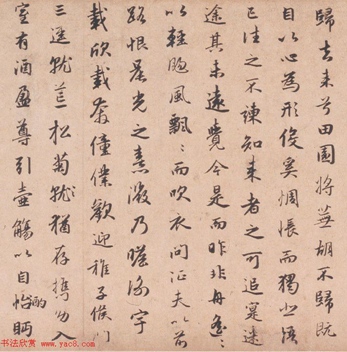 歸去来兮田園將蕪胡不歸既
自以心為形役奚惆悵而獨悲悟
已往之不諫知来者之可追寔迷
途其未遠覺今是而昨非舟遥〻
以輕颺風飄〻而吹衣問征夫以前
路恨晨光之熹微乃瞻衡宇
載欣載奔僮僕歡迎稚子候門
三逕就荒松菊就猶存攜幼入
室有酒盈尊引壺觴以自怡眄
酌
书法欣赏
www.yac8.com